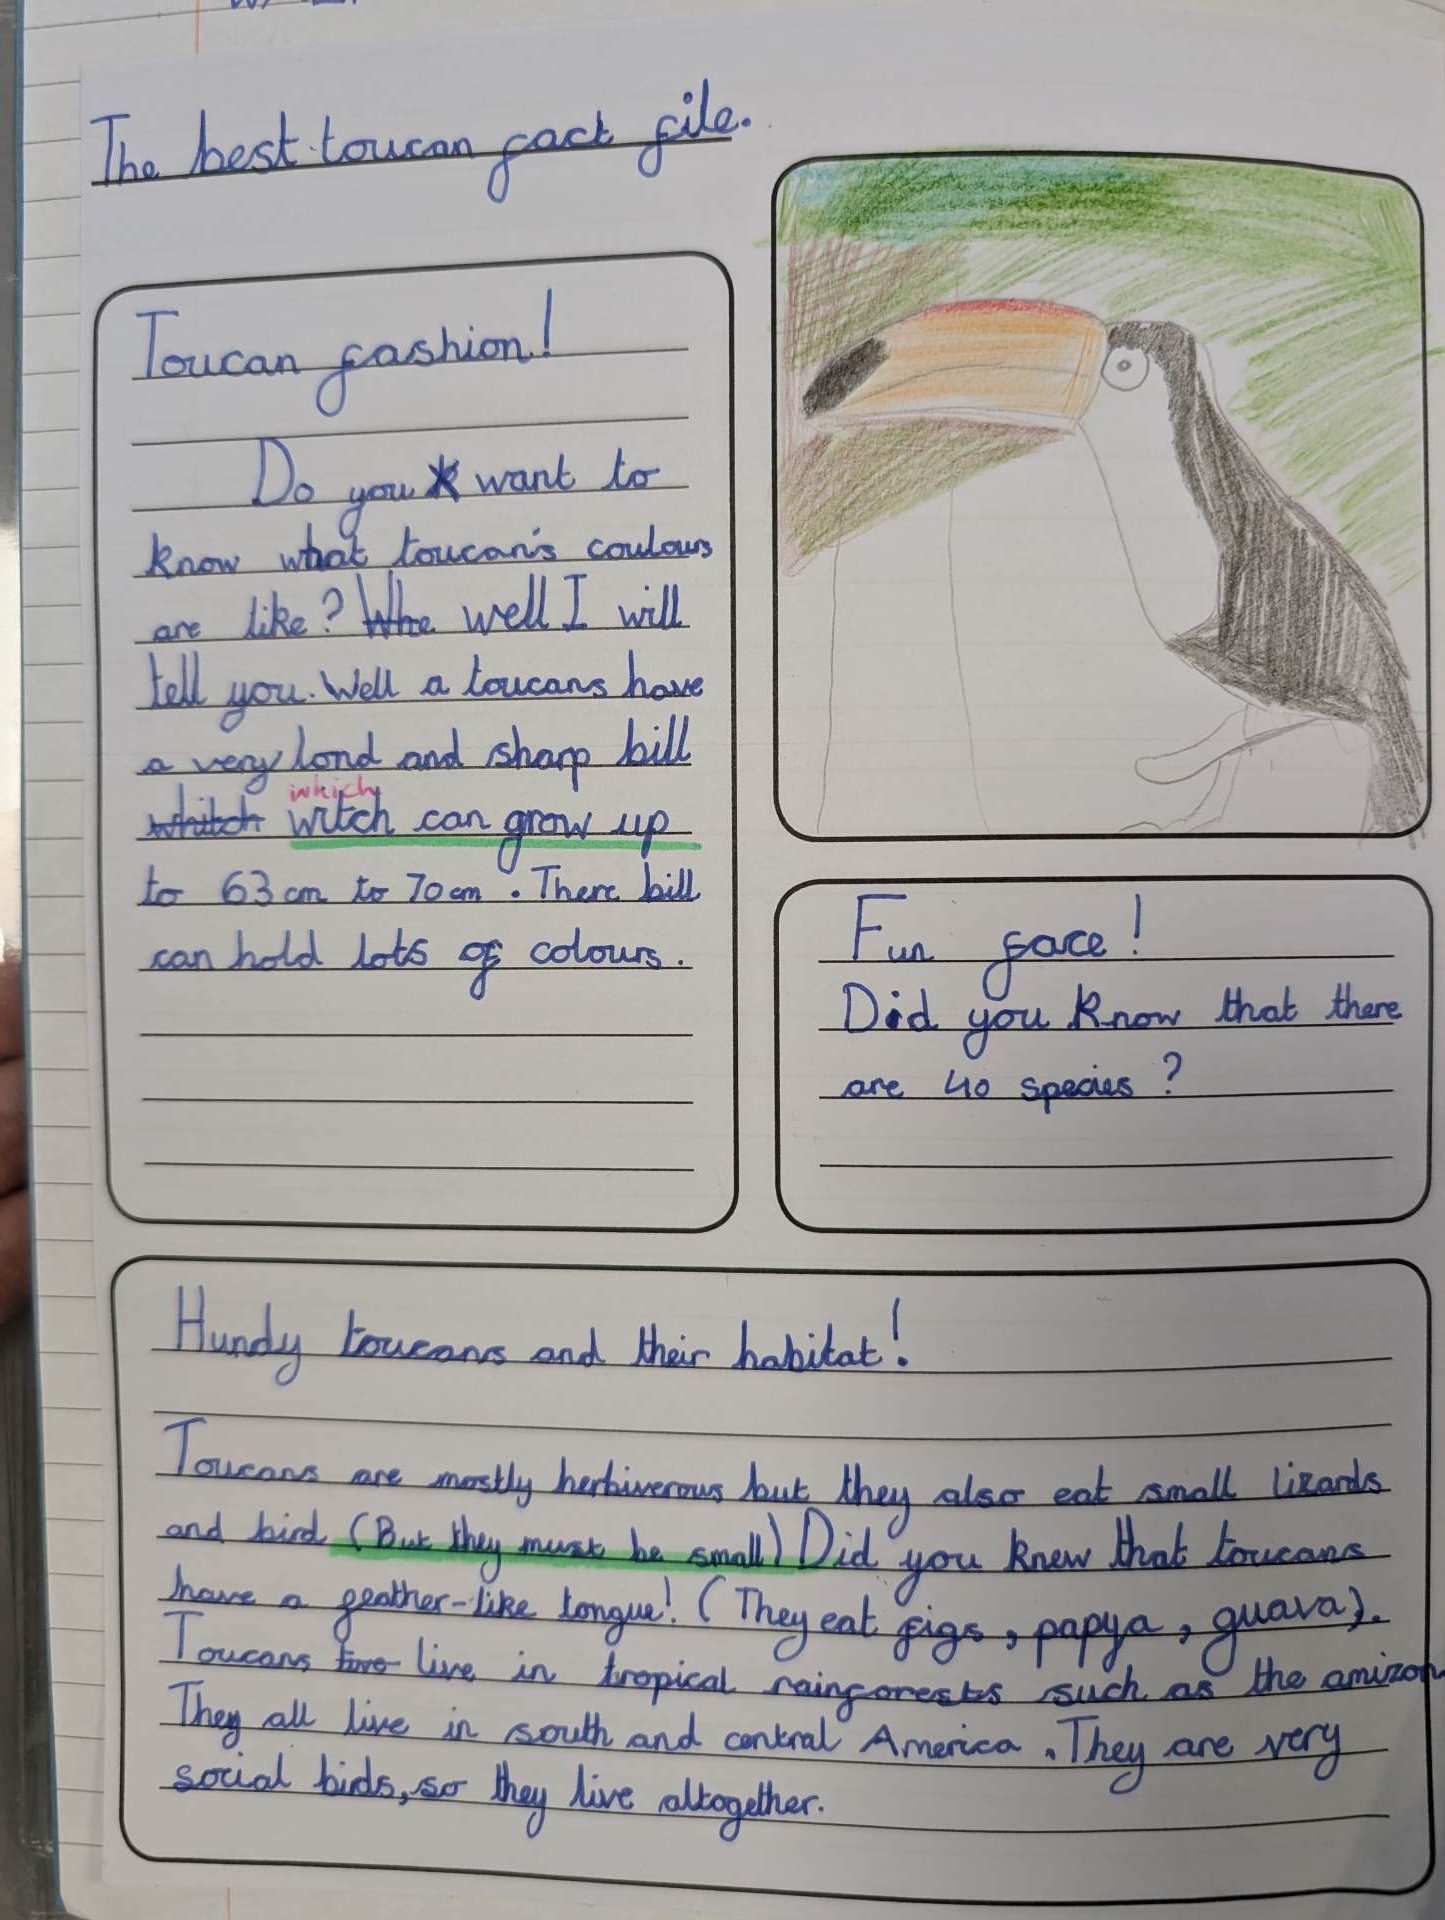 The best toucan fact file.
Toucan fashion!
Do you want to
know what toucan's coulours
are like? Whe well I will
tell you. Well a toucans have
a very lond and sharp bill
which
whitch witch can grow up
to 63 cm to 70 cm. There bill
can hold lots of colours.
Fun face!
Did you know that there
are 40 species?
Hundy toucans and their habitat!
Toucans are mostly herbiverous but they also eat small lizards
and bird (But they must be small) Did you knew that toucans
have a feather-like tongue! (They eat figs, papya, guava).
Toucans live in tropical rainforests such as the amizon
They all live in south and central America. They are very
social bids, so they live altogether.